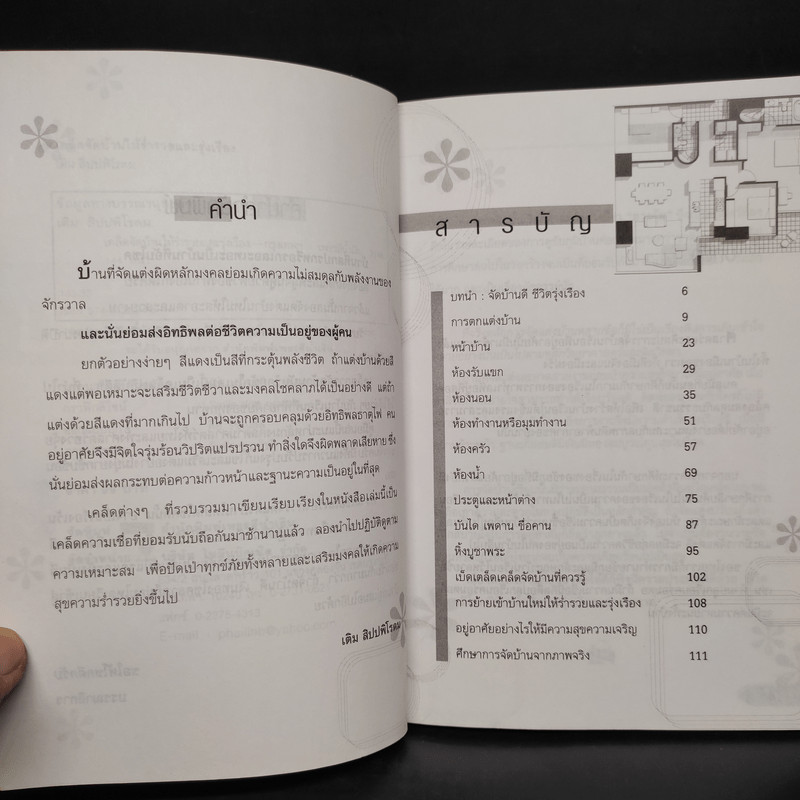 คำนำ
บ้านที่จัดแต่งผิดหลักมงคลย่อมเกิดความไม่สมดุลกับพลังงานของ
จักรวาล
และนั่นย่อมส่งอิทธิพลต่อชีวิตความเป็นอยู่ของผู้คน
ยกตัวอย่างง่ายๆ สีแดงเป็นสีที่กระตุ้นพลังชีวิต ถ้าแต่งบ้านด้วยสี
แดงแต่พอเหมาะจะเสริมชีวิตชีวาและมงคลโชคลาภได้เป็นอย่างดี แต่ถ้า
แต่งด้วยสีแดงที่มากเกินไป บ้านจะถูกครอบคลุมด้วยอิทธิพลธาตุไฟ คน
อยู่อาศัยจึงมีจิตใจรุ่มร้อนวิปริตแปรปรวน ทำสิ่งใดจึงผิดพลาดเสียหาย ซึ่ง
นั่นย่อมส่งผลกระทบต่อความก้าวหน้าและฐานะความเป็นอยู่ในที่สุด
เคล็ดต่างๆ ที่รวบรวมมาเขียนเรียบเรียงในหนังสือเล่มนี้เป็น
เคล็ดความเชื่อที่ยอมรับนับถือกันมาช้านานแล้ว ลองนำไปปฏิบัติดูตาม
ความเหมาะสม เพื่อปัดเป่าทุกข์ภัยทั้งหลายและเสริมมงคลให้เกิดความ
สุขความร่ำรวยยิ่งขึ้นไป
เติม สิปปพิโรดม
สารบัญ
บทนำ : จัดบ้านดี ชีวิตรุ่งเรือง 6
การตกแต่งบ้าน 9
หน้าบ้าน 23
ห้องรับแขก 29
ห้องนอน 35
ห้องทำงานหรือมุมทำงาน 51
ห้องครัว 57
ห้องน้ำ 69
ประตูและหน้าต่าง 75
บันได เพดาน ขื่อคาน 87
หิ้งบูชาพระ 95
เบ็ดเตล็ดเคล็ดจัดบ้านที่ควรรู้ 102
การย้ายเข้าบ้านใหม่ให้ร่ำรวยและรุ่งเรือง 108
อยู่อาศัยอย่างไรให้มีความสุขความเจริญ 110
ศึกษาการจัดบ้านจากภาพจริง 111